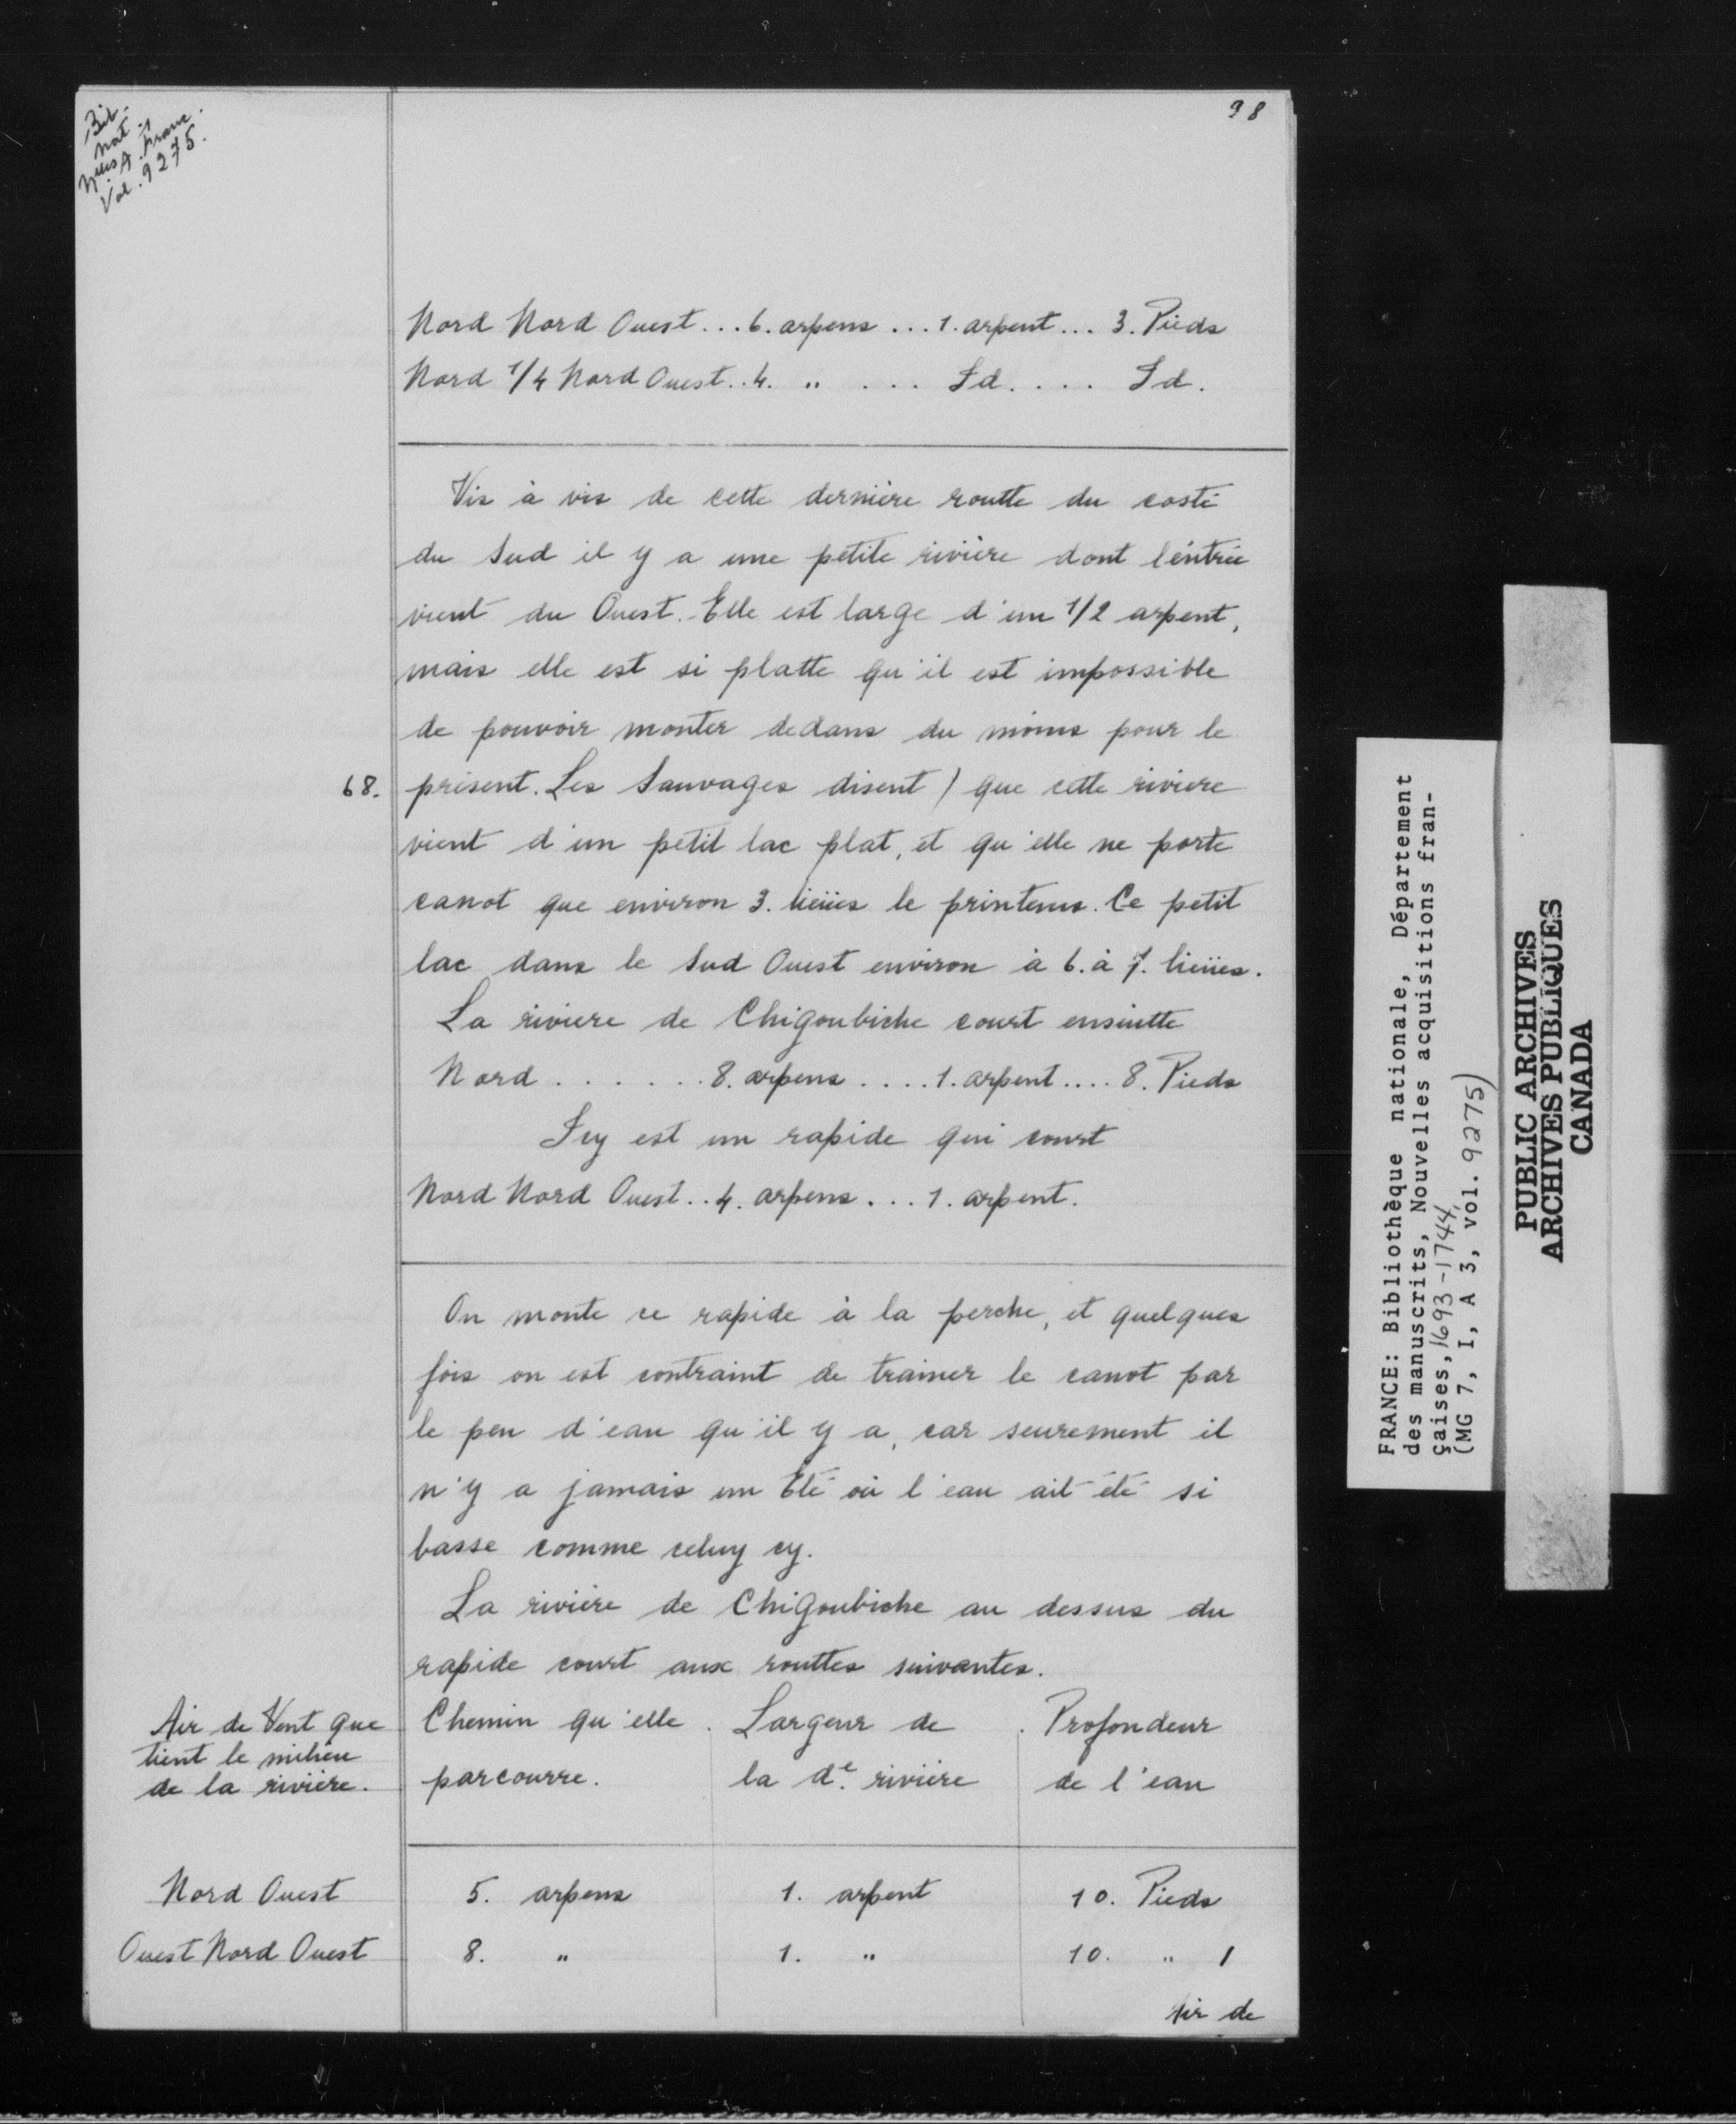 98
Bib.
nat.
Vol. 9275.
Nord Nord Ouest... 6. arpens ... 1. arpent... 3. Pieds
Nord 1/4 Nord Ouest.. 4. " .... Id..... Id.
Vis à vis de cette dernière routte du costé
du Sud il y a une petite rivière dont l'éntrée
vient du Ouest. Elle est large d'un 1/2 arpent,
mais elle est si platte qu'il est impossible
de pouvoir monter dedans du moins pour le
68. présent. Les Sauvages disent ) que cette riviere
vient d'un petit lac plat, et qu'elle ne porte
canot que environ 3. lieües le printems. Ce petit
lac dans le Sud Ouest environ à 6. à 7. lieües.
La riviere de Chigoubiche court ensuitte
Nord ...... 8. arpens .... 1. arpent .... 8. Pieds
Icy est un rapide qui court
Nord Nord Ouest.. 4. arpens ... 1. arpent.
On monte ce rapide à la perche, et quelques
fois on est contraint de trainer le canot par
le peu d'eau qu'il y a, car seurement il
n'y a jamais un Eté où l'eau ait été si
basse comme celuy cy.
La rivière de Chigoubiche au dessus du
rapide court aux routtes suivantes.
Air de Vent que
tient le milieu
de la rivière.
Chemin qu'elle
parcourre.
Largeur de
la de. rivière
Profondeur
de l'eau
Nord Ouest 5. arpens 1. arpent 10. Pieds
Ouest Nord Ouest 8. " 1. " 10. " /
Air de
FRANCE: Bibliothèque nationale, Département
des manuscrits, Nouvelles acquisitions fran-
çaises, 1693-1744,
(MG 7, I, A 3, vol. 9275)
PUBLIC ARCHIVES
ARCHIVES PUBLIQUES
CANADA